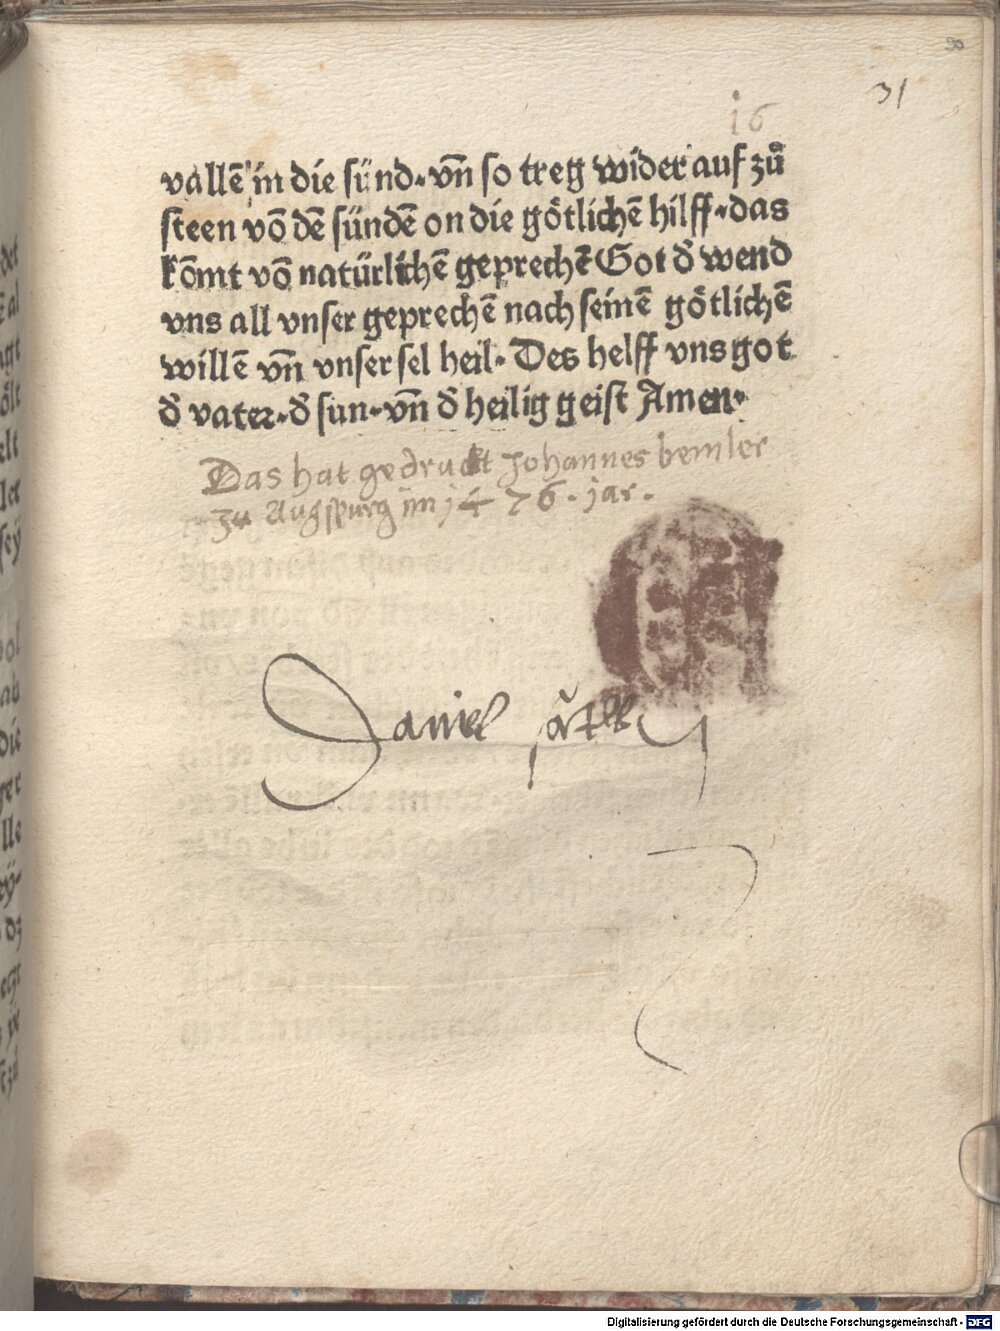 30
31
16
vallē in die sünd. vn̄ so treg wider auf zů
steen vō dē sündē on die gӧtlichē hilff. das
kōmt vō natürlichē geprechē Got d̄ wend
vns all vnser geprechē nach seinē gӧtlichē
willē vn̄ vnser sel heil. Des helff vns got
d̄ vater. d̄ sun. vn̄ d̄ heilig geist Amen.
Das hat gedruckt Johannes bemler
zu Augspurg im 1476. jar.
Daniel
Digitalisierung gefördert durch die Deutsche Forschungsgemeinschaft - DFG